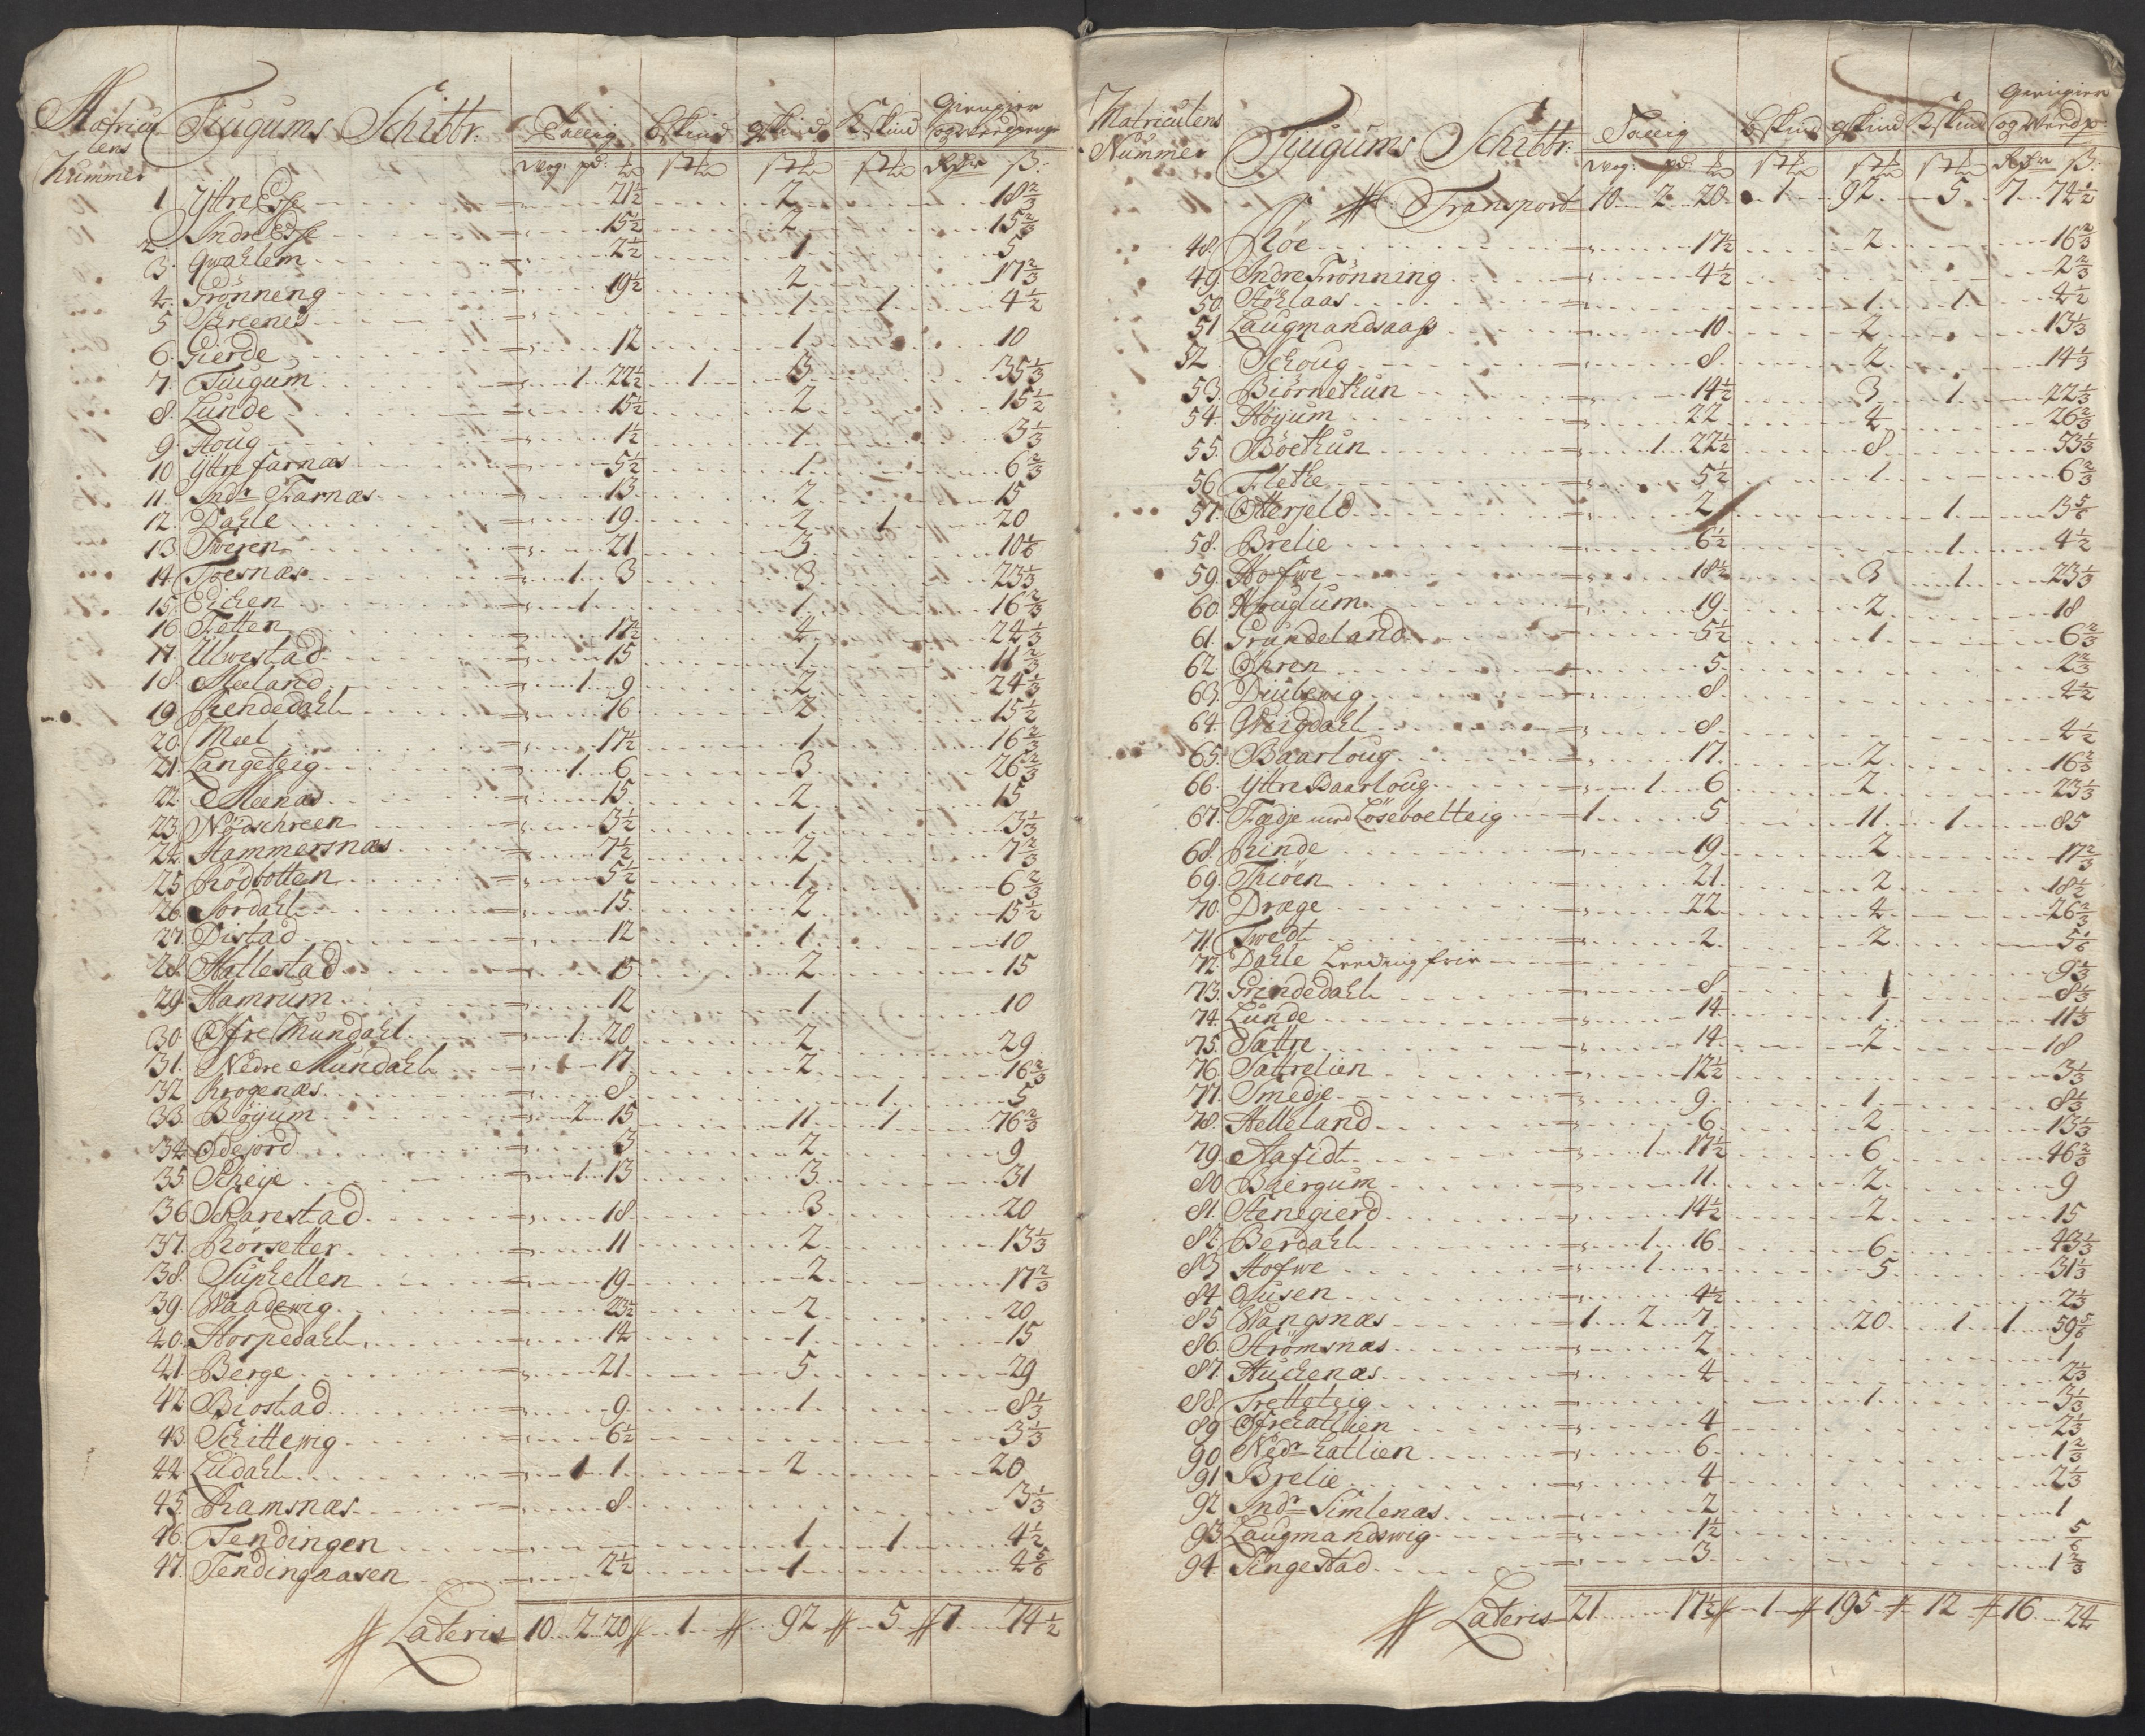 Matricu Tiugums Schibtr. Tallig bskind gskind kskind giengierd
lens
Nummer
1 Yttre Esse 21½ 2 18⅔
2. Indre Esse 15½ 2 15⅔
3. Qwahlem 2½ 1 5
4. Grönneng 19½ 2 17⅔
5 Schreenes 1 1 4½
6. Gierde 12 1 10
7. Tiugum 1 22½ 1 3 35⅓
8. Lunde 15½ 2 15½
9. Houg 1½ 1 3⅓
10 Yttre farnæs 5½ 1 6⅔
11. Indr Farnæs 13 2 15
12. Dahle 19 2 1 20
13. Sweren 21 3 10⅙
14. Toesnæs 1 3 3 23⅓
15. Eichen 1 1 16⅔
16. Fetten 17½ 4 24⅓
17. Ulwestad 15 1 11⅔
18. Meeland 1 9 2 24⅓
19. Hendedahl 16 2 15½
20. Meel 17½ 1 16⅔
21. Langeteig 1 6 3 26⅔
22. Meenæs 15 2 15
23. Nödschreen 3½ 1 3⅓
24. Hammersnæs 7½ 2 7⅔
25. Rödbotten 5½ 1 6⅔
26. Jordahl 15 2 15½
27. Distad 12 1 10
28. Hatlestad 15 2 15
29. Hamrum 12 1 10
30. Öfre Mundahl 1 20 2 29
31. Nedre Mundahl 17 2 16⅔
32 Krogenæs 8 1 5
33. Böyum 2 15 11 1 76⅔
34. Ödejord 3 2 9
35. Scheije 1 13 3 31
36. Scharestad 18 3 20
37. Rörsetter 11 2 13⅓
38. Suphellen 19 2 17⅔
39. Waadewig 23½ 2 20
40. Horpedahl 14 1 15
41. Berge 21 5 29
42. Biostad 9 1 8⅓
43. Schittewig 6½ 3⅓
44. Ludahl 1 1 2 20
45. Ramsnæs 8 3⅓
46. Tendingen 1 1 4½
47. Tendingaasen 2½ 1 4⅚
Lateris 10 2 20 1 92 5 7 74½
Matriculens
Nummer Tiugums Schibtr. Tallig bskind gskind kskind
Transport 10 2 20 1 92 5 7 74½
48. Röe 17½ 2 16⅔
49. Indre Frönning 4½ 2⅔
50. Stöhlaas 1 1 4½
51 Laugmandsaass 10 2 13⅓
52. Schoug 8 2 14⅓
53. Biörnethun 14½ 3 1 22⅓
54. Höyum 22 4 26⅔
55. Böethun 1 22½ 8 53⅓
56 Flethe 5½ 1 6⅔
57. Otterjeld 2 1 3⅚
58. Brelie 6½ 1 4½
59. Hofwe 18½ 3 1 23⅓
60. Houglum 19 2 18
61. Grundeland 5½ 1 6⅔
62. Öhren 5 2⅔
63. Diubewig 8 4½
64. Weigdahl 8 4½
65. Baarloug 17 2 16⅔
66. Yttre Baarloug 1 6 2 23⅓
67. Fædje med Löseboetteig 1 5 11 1 85
68. Rinde 19 2 17⅔
69. Thiöen 21 2 18½
70. Dræge 22 4 26⅔
71. Twedt 2 2 5⅙
72. Dahle Leedingfrie 9⅓
73. Grindedahl 8 1 8⅓
74. Lunde 14 1 11⅓
75. Sættre 14 2 18
76. Sættrelien 12½ 3⅓
77. Smedje 9 1 8⅓
78. Helleland 6 2 13⅓
79. Aafidt 1 17½ 6 46⅔
80 Baergum 11 2 9
81. Stenegierd 14½ 2 15
82. Berdahl 1 16 6 43⅓
83. Hofwe 1 5 31⅓
84. Ousen 4½ 2⅓
85 Wangsnæs 1 2 7 20 1 1 59⅚
86. Strömsnæs 2 1
87. Huchenæs 4 2⅓
88. Tretteteig 1 3⅓
89 Öfrehatlien 4 2⅓
90 Nedr hatlien 6 1⅔
91 Brelie 4 2⅓
92 Indr Simlenæs 2 1
93. Laugmandswig 1½ ⅚
94. Tingestad 3 1⅔
Lateris 21 17½ 1 195 12 16 24